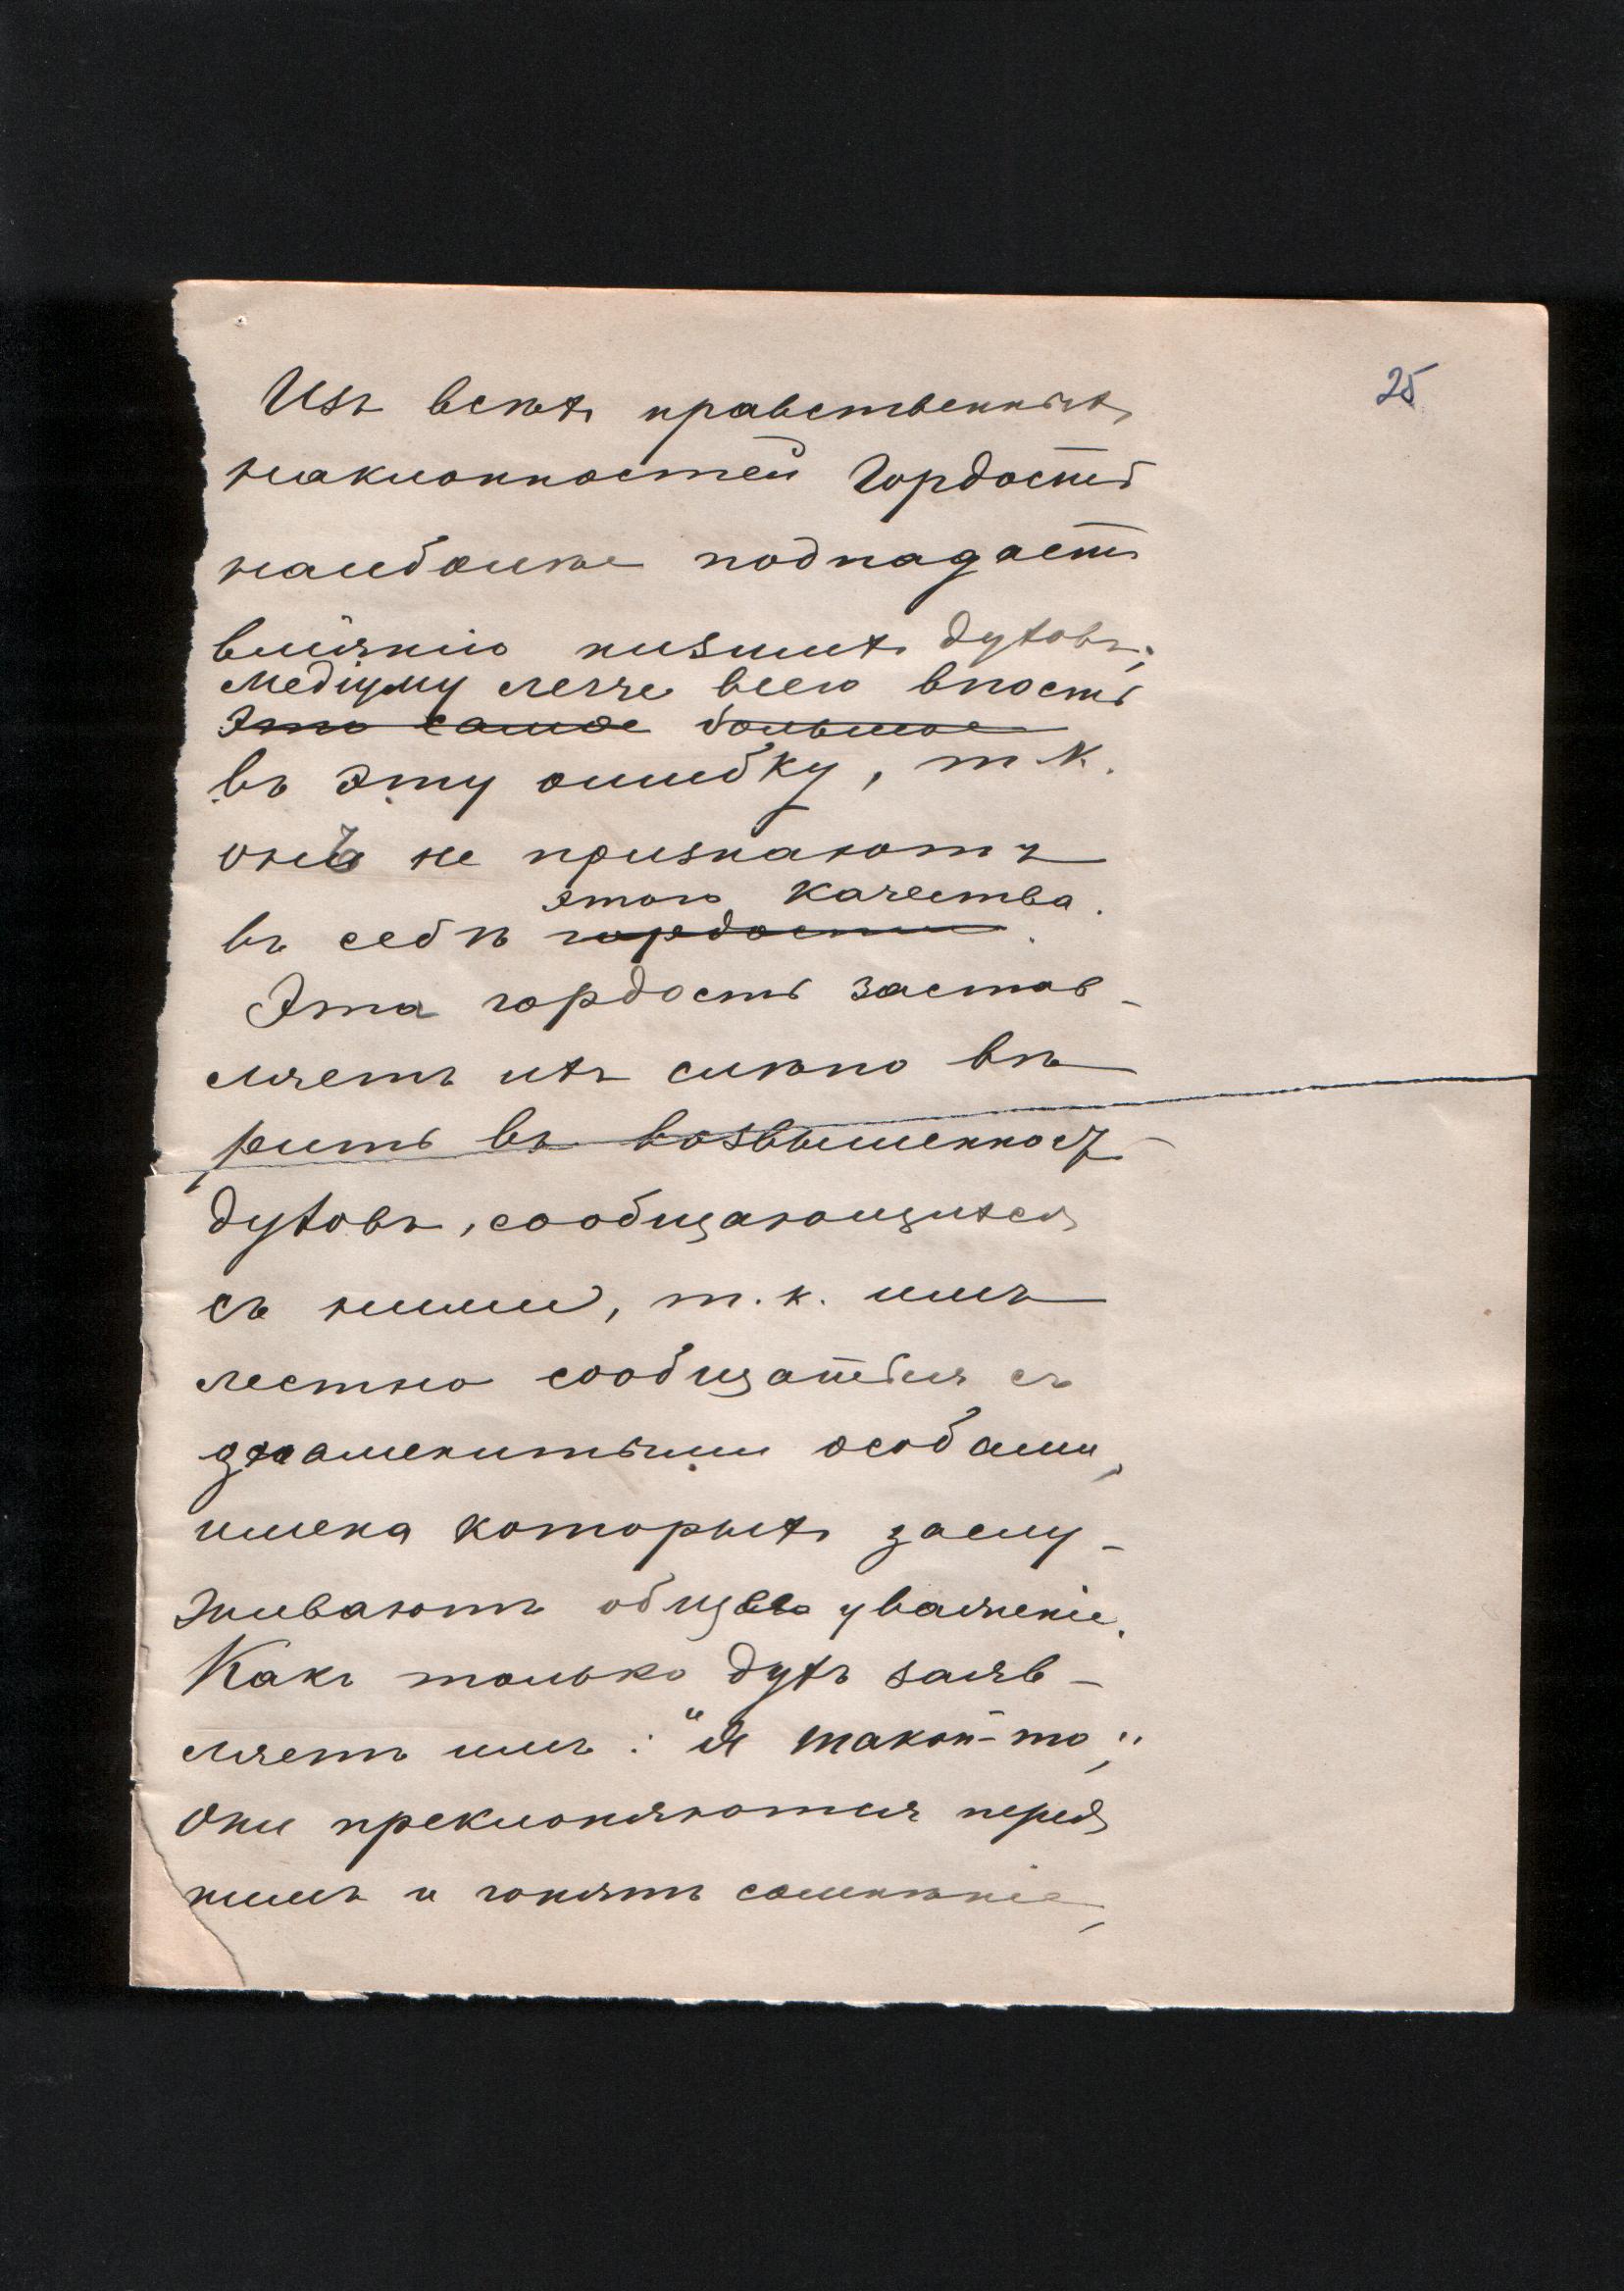 25
Изъ всѣхъ нравственныхъ
наклонностей Гордость
наиболѣе подпадаетъ
вліянію низшихъ духовъ;
Медіуму легче всего впасть
Это самое большое
въ эту ошибку, т.к.
онъ не признаютъ
этого качества.
въ себѣ гордости.
Эта гордость застав-
ляетъ ихъ слѣпо вѣ
рить въ возвышенност
духовъ, сообщающихся
съ ними, т.к. имъ
лестно сообщаться съ
знаменитыми особами,
имена которыхъ заслу-
живаютъ общее уваженіе.
Какъ только духъ заяв-
ляетъ имъ: "Я такой-то;"
Они преклоняются передъ
нимъ и гонятъ сомнѣніе,